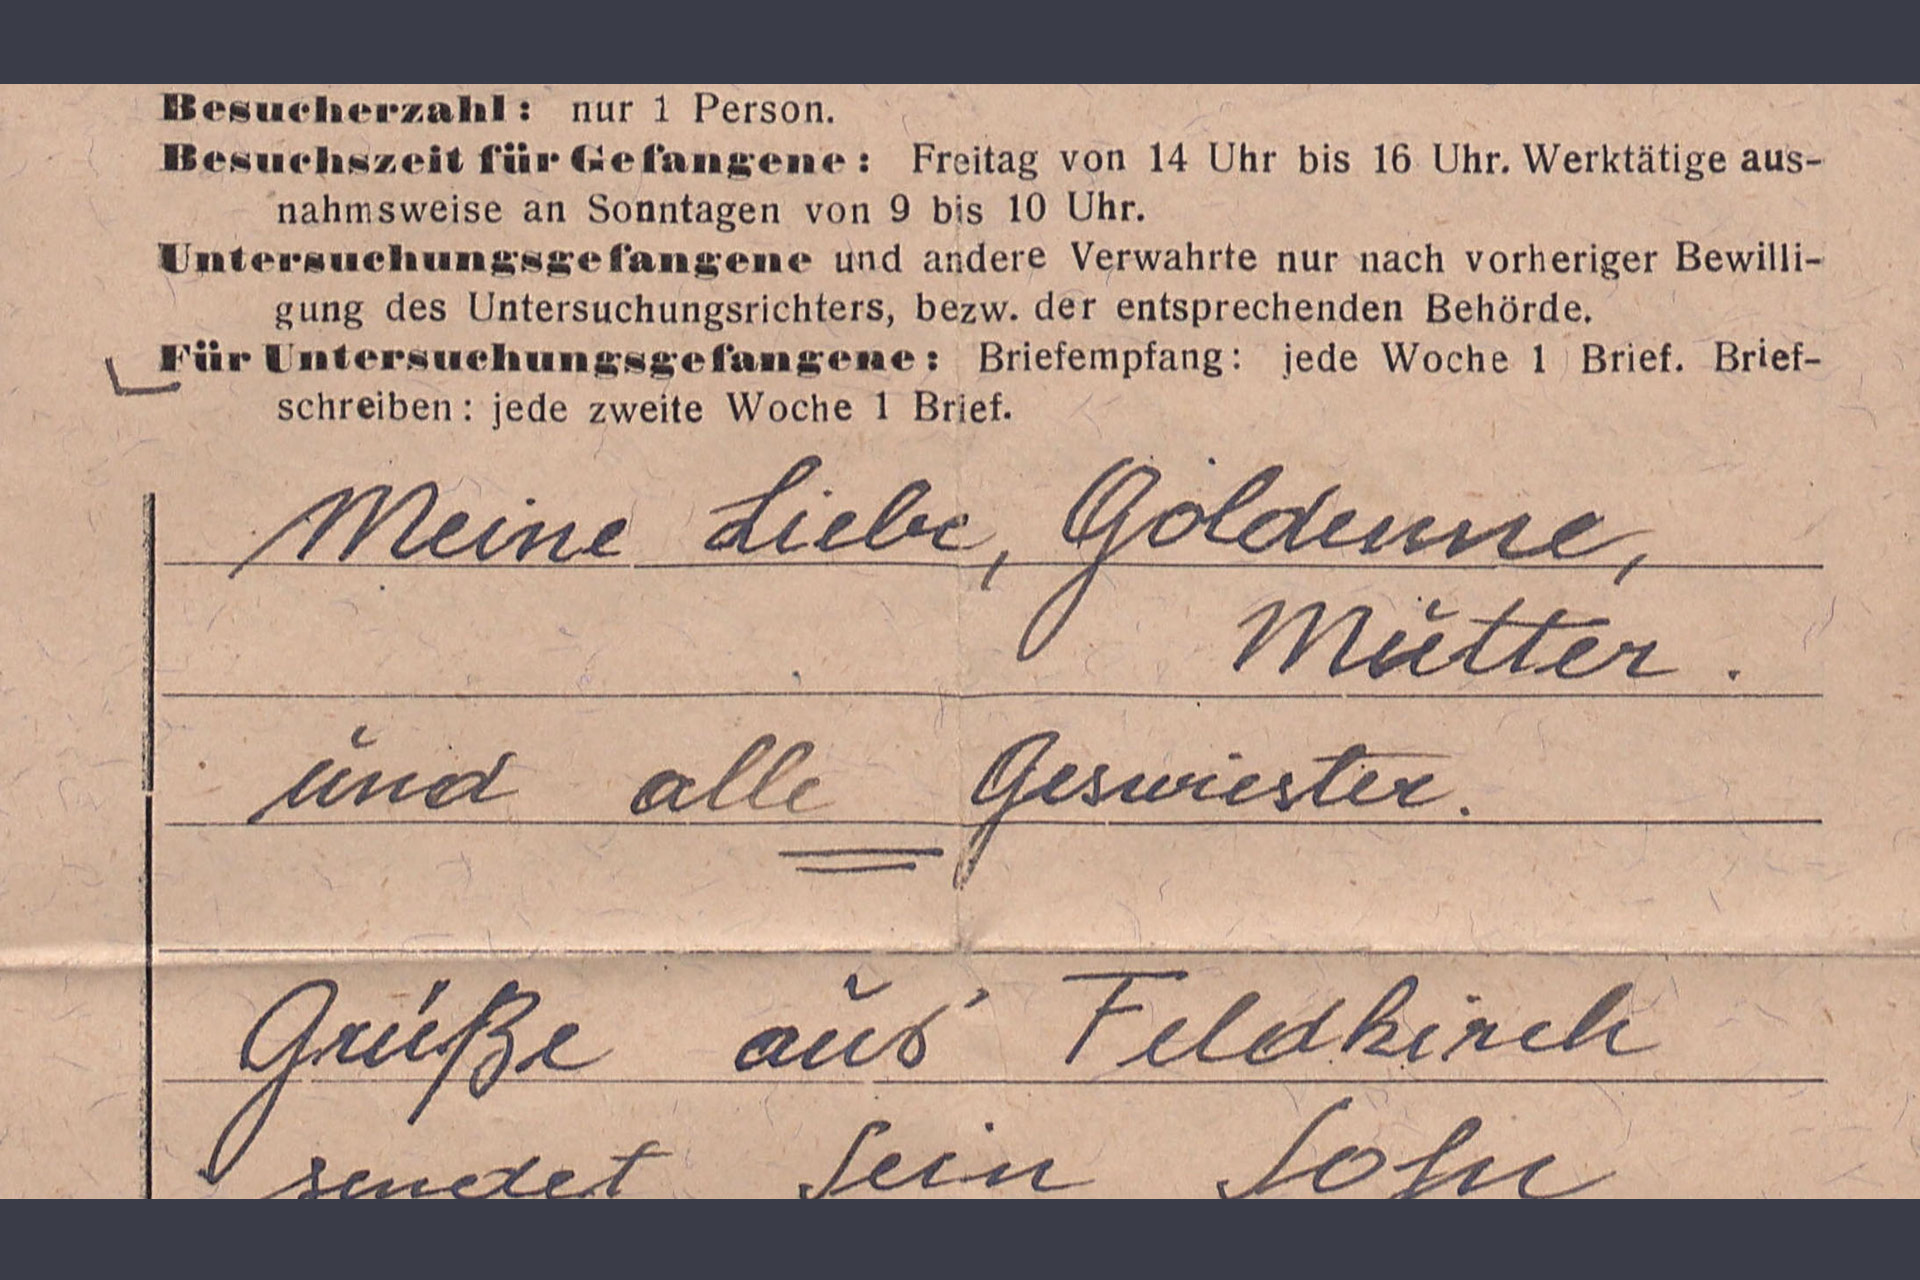 Besucherzahl: nur 1 Person.
Besuchszeit für Gefangene: Freitag von 14 Uhr bis 16 Uhr. Werktätige aus-
nahmsweise an Sonntagen von 9 bis 10 Uhr.
Untersuchungsgefangene und andere Verwahrte nur nach vorheriger Bewilli-
gung des Untersuchungsrichters, bezw. der entsprechenden Behörde.
Für Untersuchungsgefangene: Briefempfang: jede Woche 1 Brief. Brief-
schreiben: jede zweite Woche 1 Brief.
Meine Liebe, Goldenne,
Mutter.
und alle Geswiester.
Grüße aus Feldkirch
sendet Sein Sohn